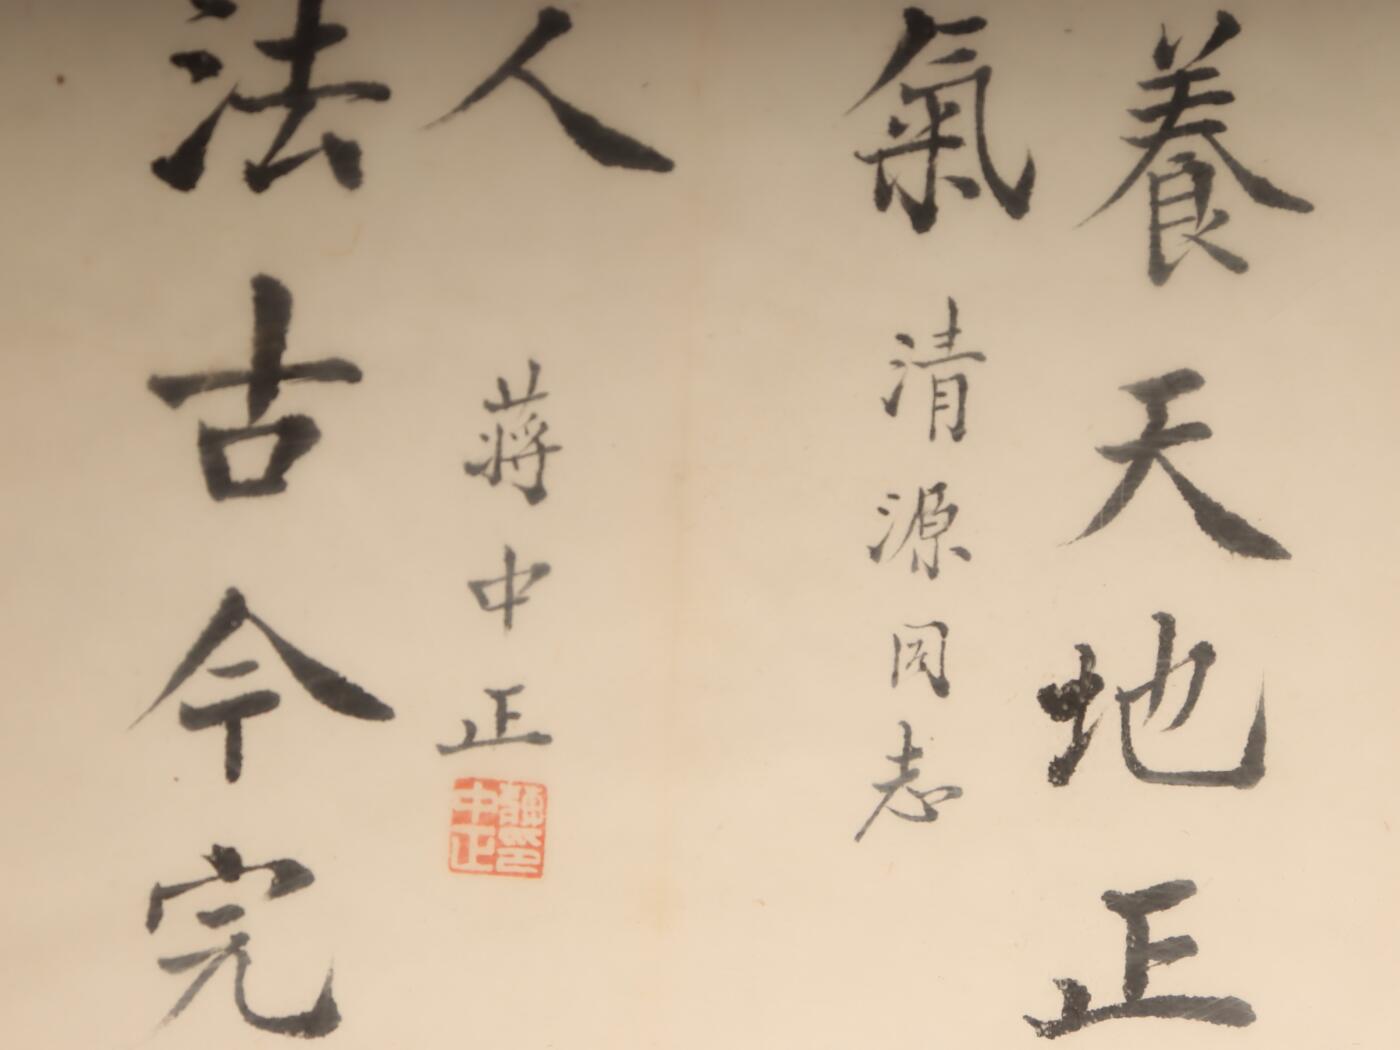 養天地正
氣
清源同志
法古今完
人
蔣中正
蔣印
中正